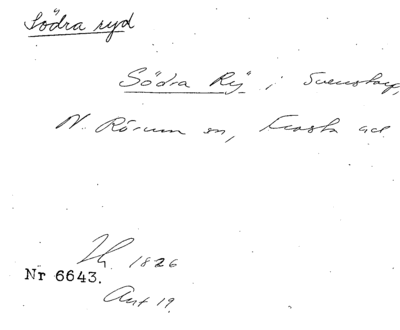 Södra ryd
Södra Rÿ i Svenstorp,
N. Rörum sn, Frosta hd
1826
Nr 6643.
Ant 19.